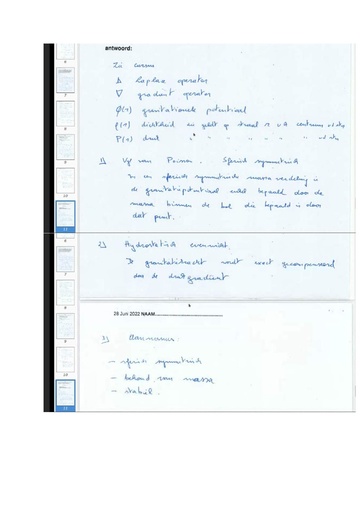 antwoord:
Zie cursus
Δ Laplace operator
∇ gradient operator
φ(r) gravitationele potentiaal
ρ(r) dichtheid en geldt op straal r v/h centrum
P(r) druk " " " " "
1) Vgl van Poisson. Sferisch symmetrisch
In een sferisch symmetrische massa verdeling is
de gravitatiepotentiaal enkel bepaald door de
massa binnen de bol die bepaald is door
dat punt.
2) Hydrostatisch evenwicht.
De gravitatiekracht wordt exact gecompenseerd
door de drukgradient
28 Juni 2022 NAAM
3) Aannames:
- sferisch symmetrisch
- behoud van massa
- stabiel.